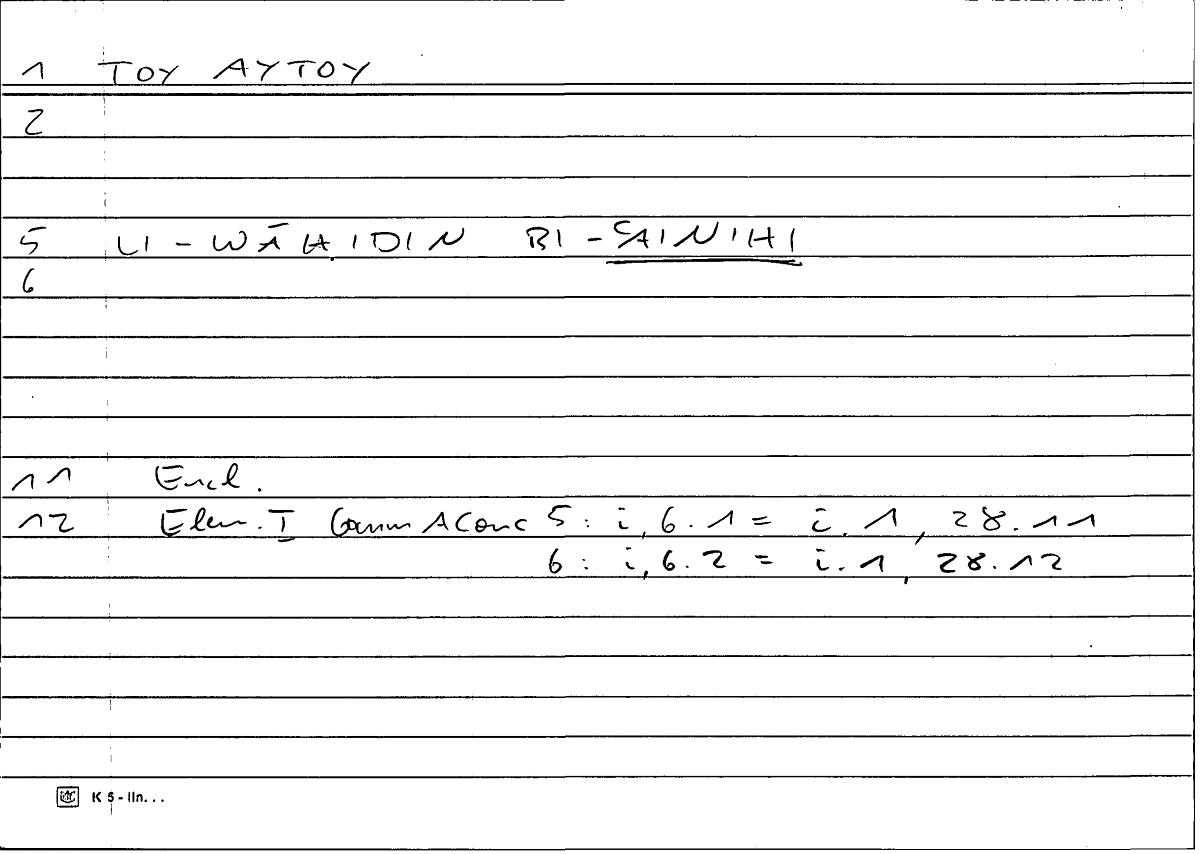 1 ΤΟΥ ΑΥΤΟΥ
2
5 LI-WĀḤIDIN BI-ʿAINIHI
6
11 Eucl.
12 Elem. I Comm A Conc 5: i, 6.1 = i.1, 28.11
6: i, 6.2 = i.1, 28.12
K 5 - lin...